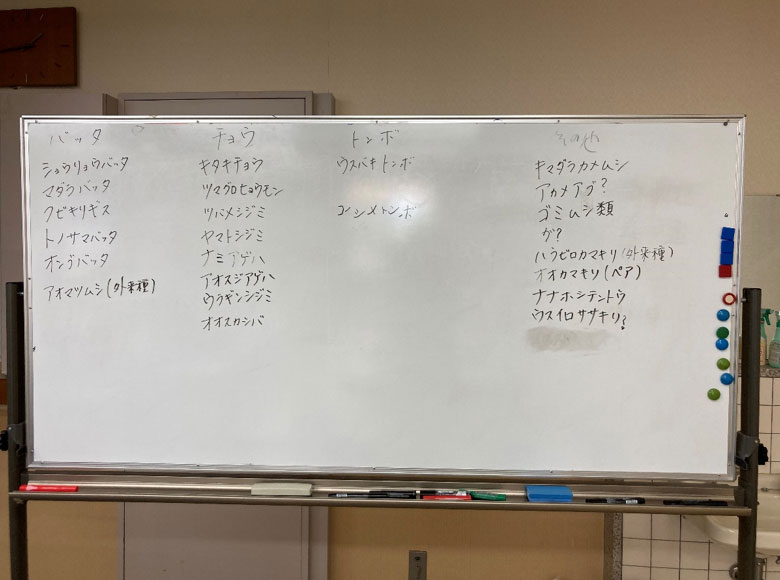 バッタ
ショウリョウバッタ
マダラバッタ
クビキリギス
トノサマバッタ
オンブバッタ
アオマツムシ(外来種)
チョウ
キタキチョウ
ツマグロヒョウモン
ツバメシジミ
ヤマトシジミ
ナミアゲハ
アオスジアゲハ
ウラギンシジミ
オオスカシバ
トンボ
ウスバキトンボ
コシメトンボ
その他
キマダラカメムシ
ゴミムシ類
ガ?
ハラビロカマキリ(外来種)
オオカマキリ(ペア)
ナナホシテントウ
ウスイロササキリ?